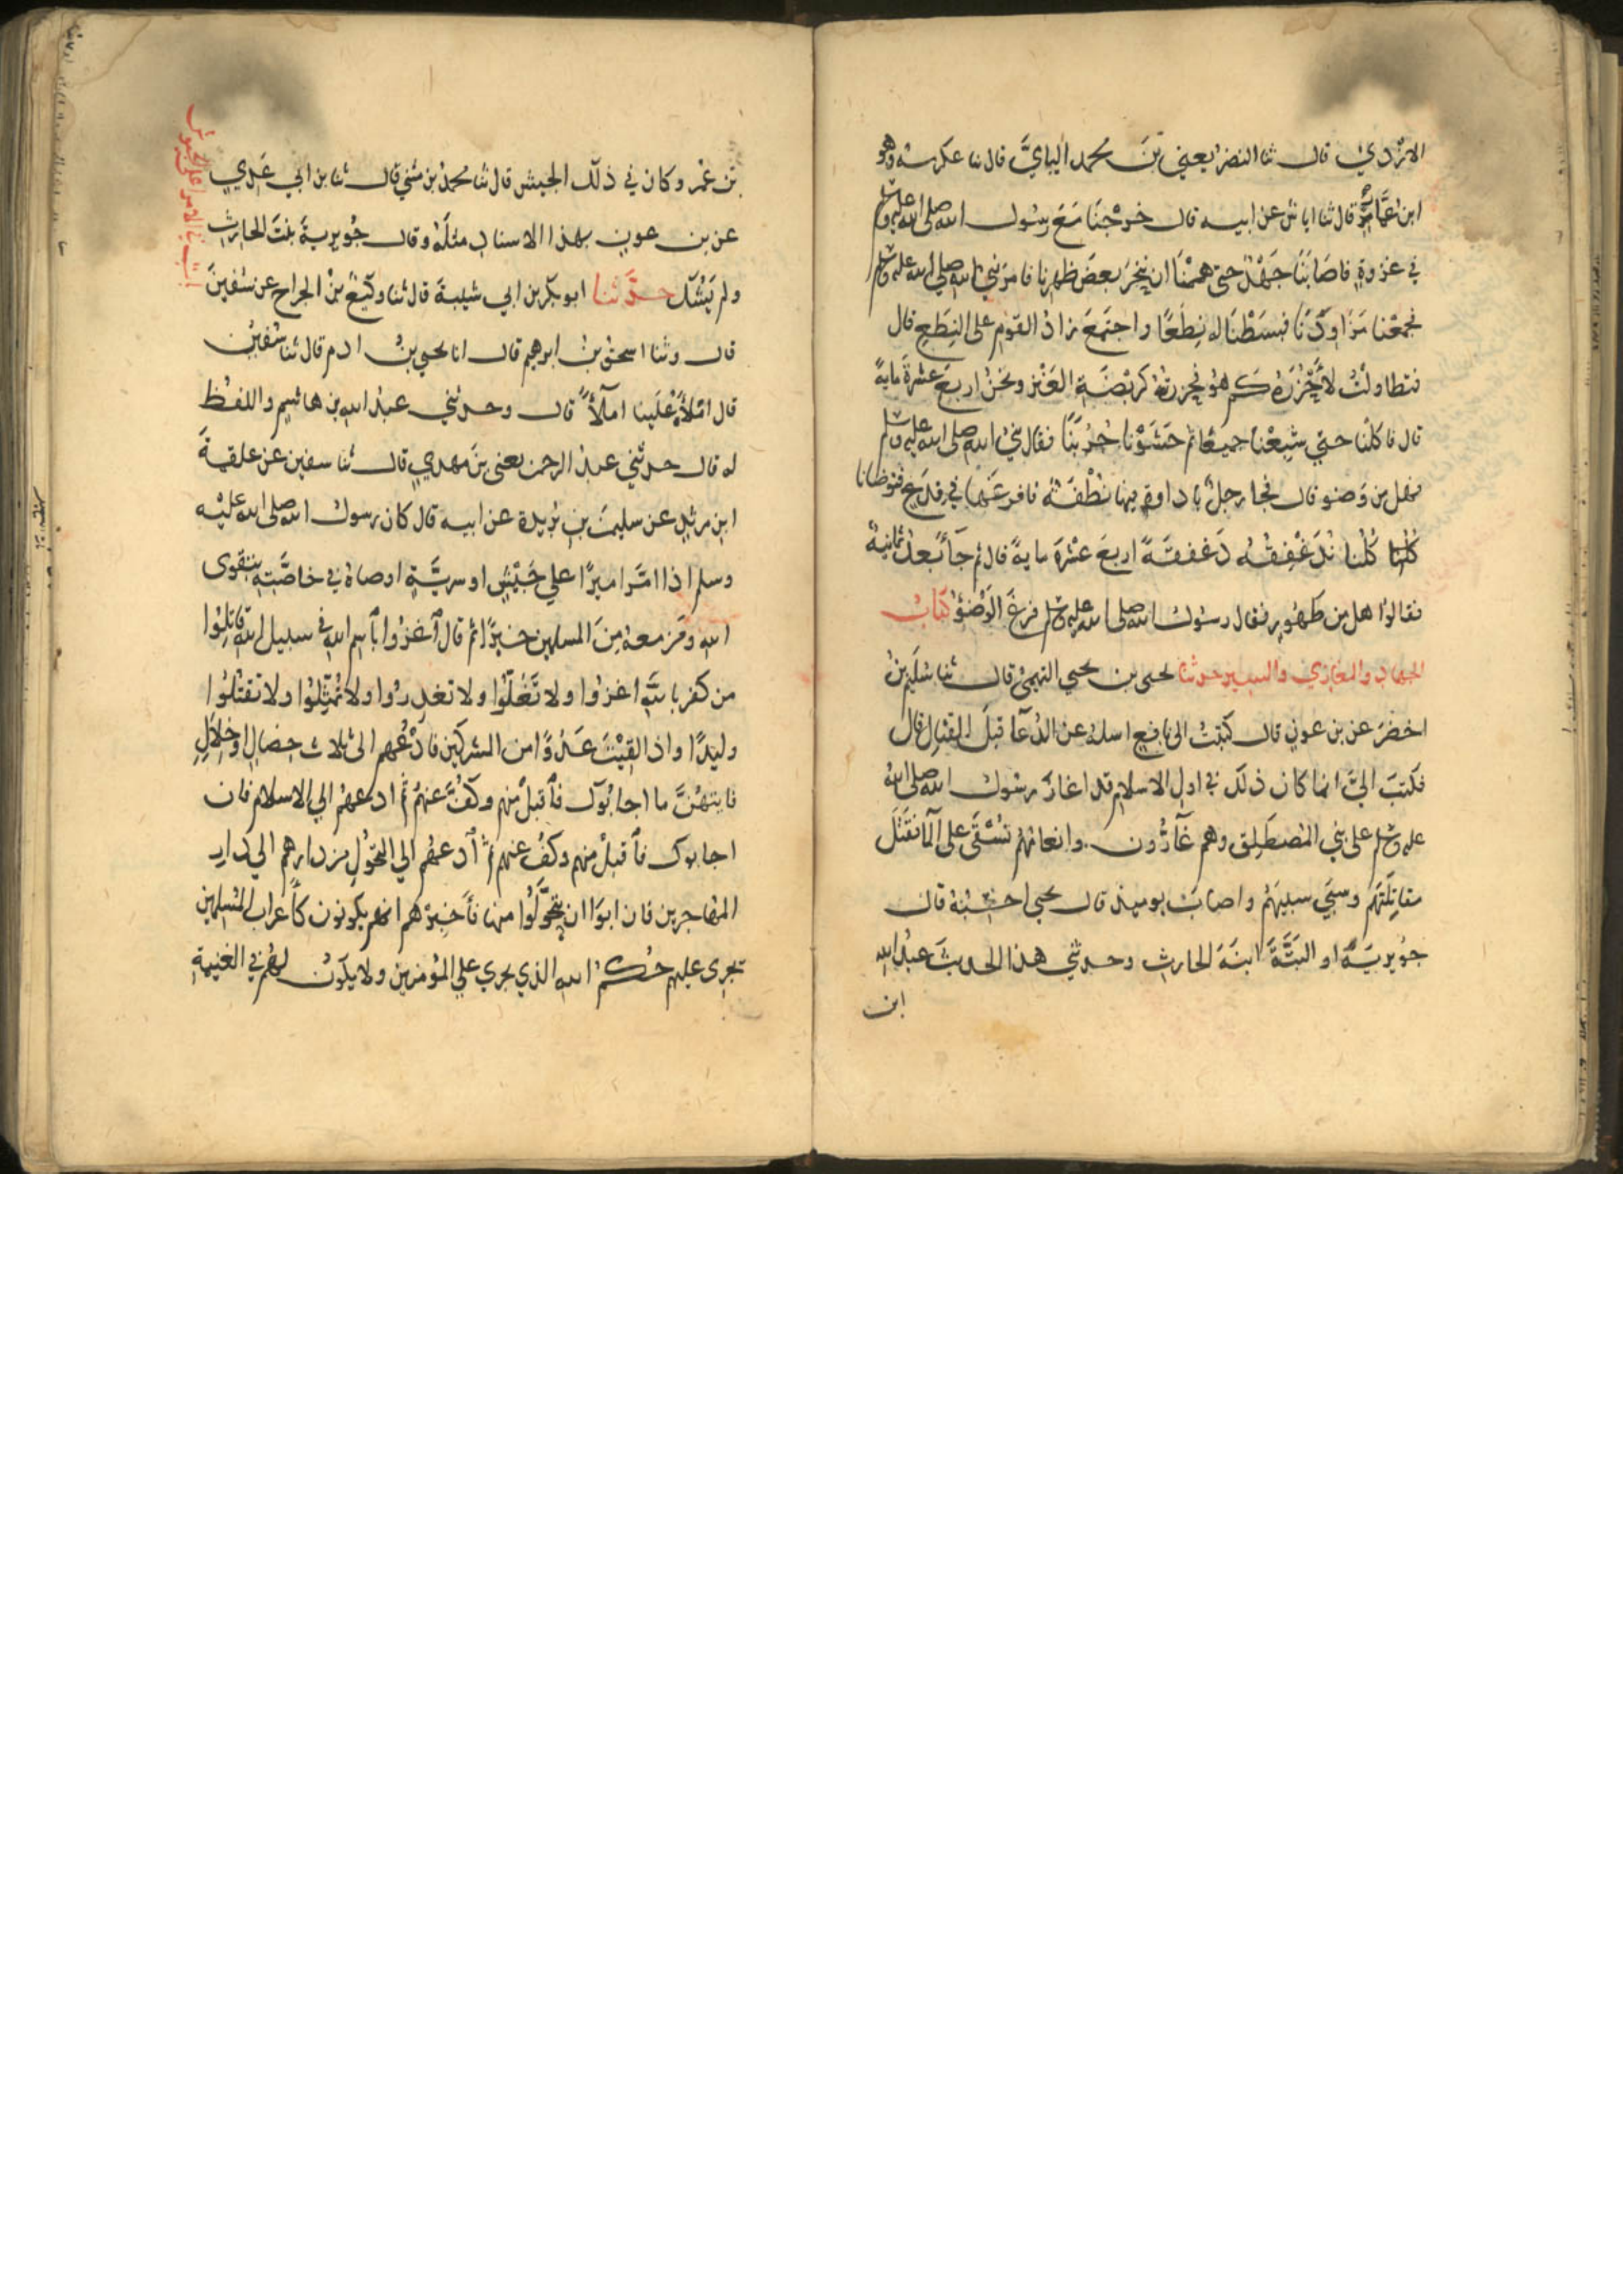 الازدي قال ثنا النضر يعني بن محمد اليمامي قال ثنا عكرمة وهو
ابن عمار قال ثنا اياس عن ابيه قال خرجنا مع رسول الله صلى الله عليه وسلم
في غزوة فاصابنا جهد حتى هممنا ان ننحر بعض ظهرنا فامر نبي الله صلى الله عليه وسلم
فجمعنا مزاودنا فبسطنا له نطعا واجتمع زاد القوم على النطع قال
فتطاولت لاحزره كم هو فحزرته كربضة العنز ونحن اربع عشرة ماية
قال فاكلنا حتى شبعنا جميعا ثم حشونا جربنا فقال نبي الله صلى الله عليه وسلم
فهل من وضو قال فجا رجل باداوة فيها نطفة فافرغها في قدح فتوضانا
كلنا كلنا ندغفقه دغفقة اربع عشرة ماية قال ثم جا بعد ثمانية
فقالوا هل من طهور فقال رسول الله صلى الله عليه وسلم فرغ الوضو كتاب
الجهاد والمغازي والسير حدثنا يحيى بن يحيى التميمي قال ثنا سليم بن
اخضر عن بن عون قال كتبت الى نافع اسله عن الدعا قبل القتال قال
فكتب الي انما كان ذلك في اول الاسلام قد اغار رسول الله صلى الله
عليه وسلم على بني المصطلق وهم غارون وانعامهم تسقى على الما فقتل
مقاتلتهم وسبى سبيهم واصاب يوميذ قال يحيى احسبه قال
جويرية او البتة ابنة الحارث وحدثني هذا الحديث عبد الله
ابن
بن عمر وكان في ذلك الجيش قال ثنا محمد بن مثنى قال ثنا بن ابي عدي
عن بن عون بهذا الاسناد مثله وقال جويرية بنت الحارث
ولم يشك حدثنا ابو بكر بن ابي شيبة قال ثنا وكيع بن الجراح عن سفين
قال وثنا اسحق بن ابرهيم قال انا يحيى بن ادم قال ثنا سفين
قال املاه علينا املا قال وحدثني عبد الله بن هاشم واللفظ
له قال حدثني عبد الرحمن يعني بن مهدي قال ثنا سفين عن علقمة
ابن مرثد عن سليمن بن بريدة عن ابيه قال كان رسول الله صلى الله عليه
وسلم اذا امر اميرا على جيش او سرية اوصاه في خاصته بتقوى
الله ومن معه من المسلمين خيرا ثم قال اغزوا باسم الله في سبيل الله قاتلوا
من كفر بالله اغزوا ولا تغلوا ولا تغدروا ولا تمثلوا ولا تقتلوا
وليدا واذا لقيت عدوا من المشركين فادعهم الى ثلاث خصال او خلال
فايتهن ما اجابوك فاقبل منهم وكف عنهم ثم ادعهم الى الاسلام فان
اجابوك فاقبل منهم وكف عنهم ثم ادعهم الى التحول من دارهم الى دار
المهاجرين فان ابوا ان يتحولوا منها فاخبرهم انهم يكونون كاعراب المسلمين
تجرى عليهم حكم الله الذي يجري على المؤمنين ولا يكون لهم في الغنيمة